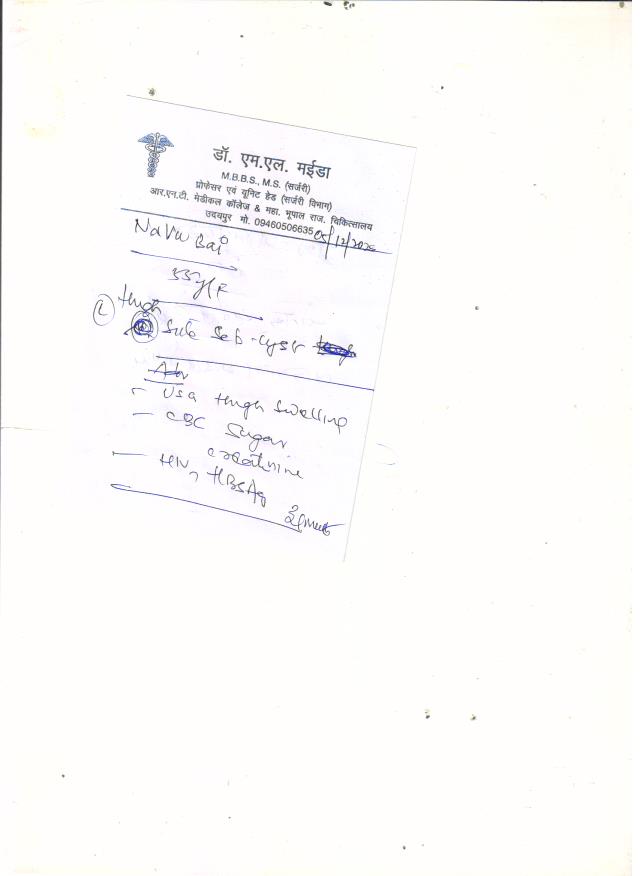 डॉ. एम.एल. मईडा
M.B.B.S., M.S. (सर्जरी)
प्रोफेसर एवं यूनिट हेड (सर्जरी विभाग)
आर.एन.टी. मेडीकल कॉलेज & महा. भूपाल राज. चिकित्सालय
उदयपुर मो. 09460506635
Bai
(L) thigh
Seb-cyst
USG thigh swelling
CBC Sugar
creatinine
HIV, HBsAg